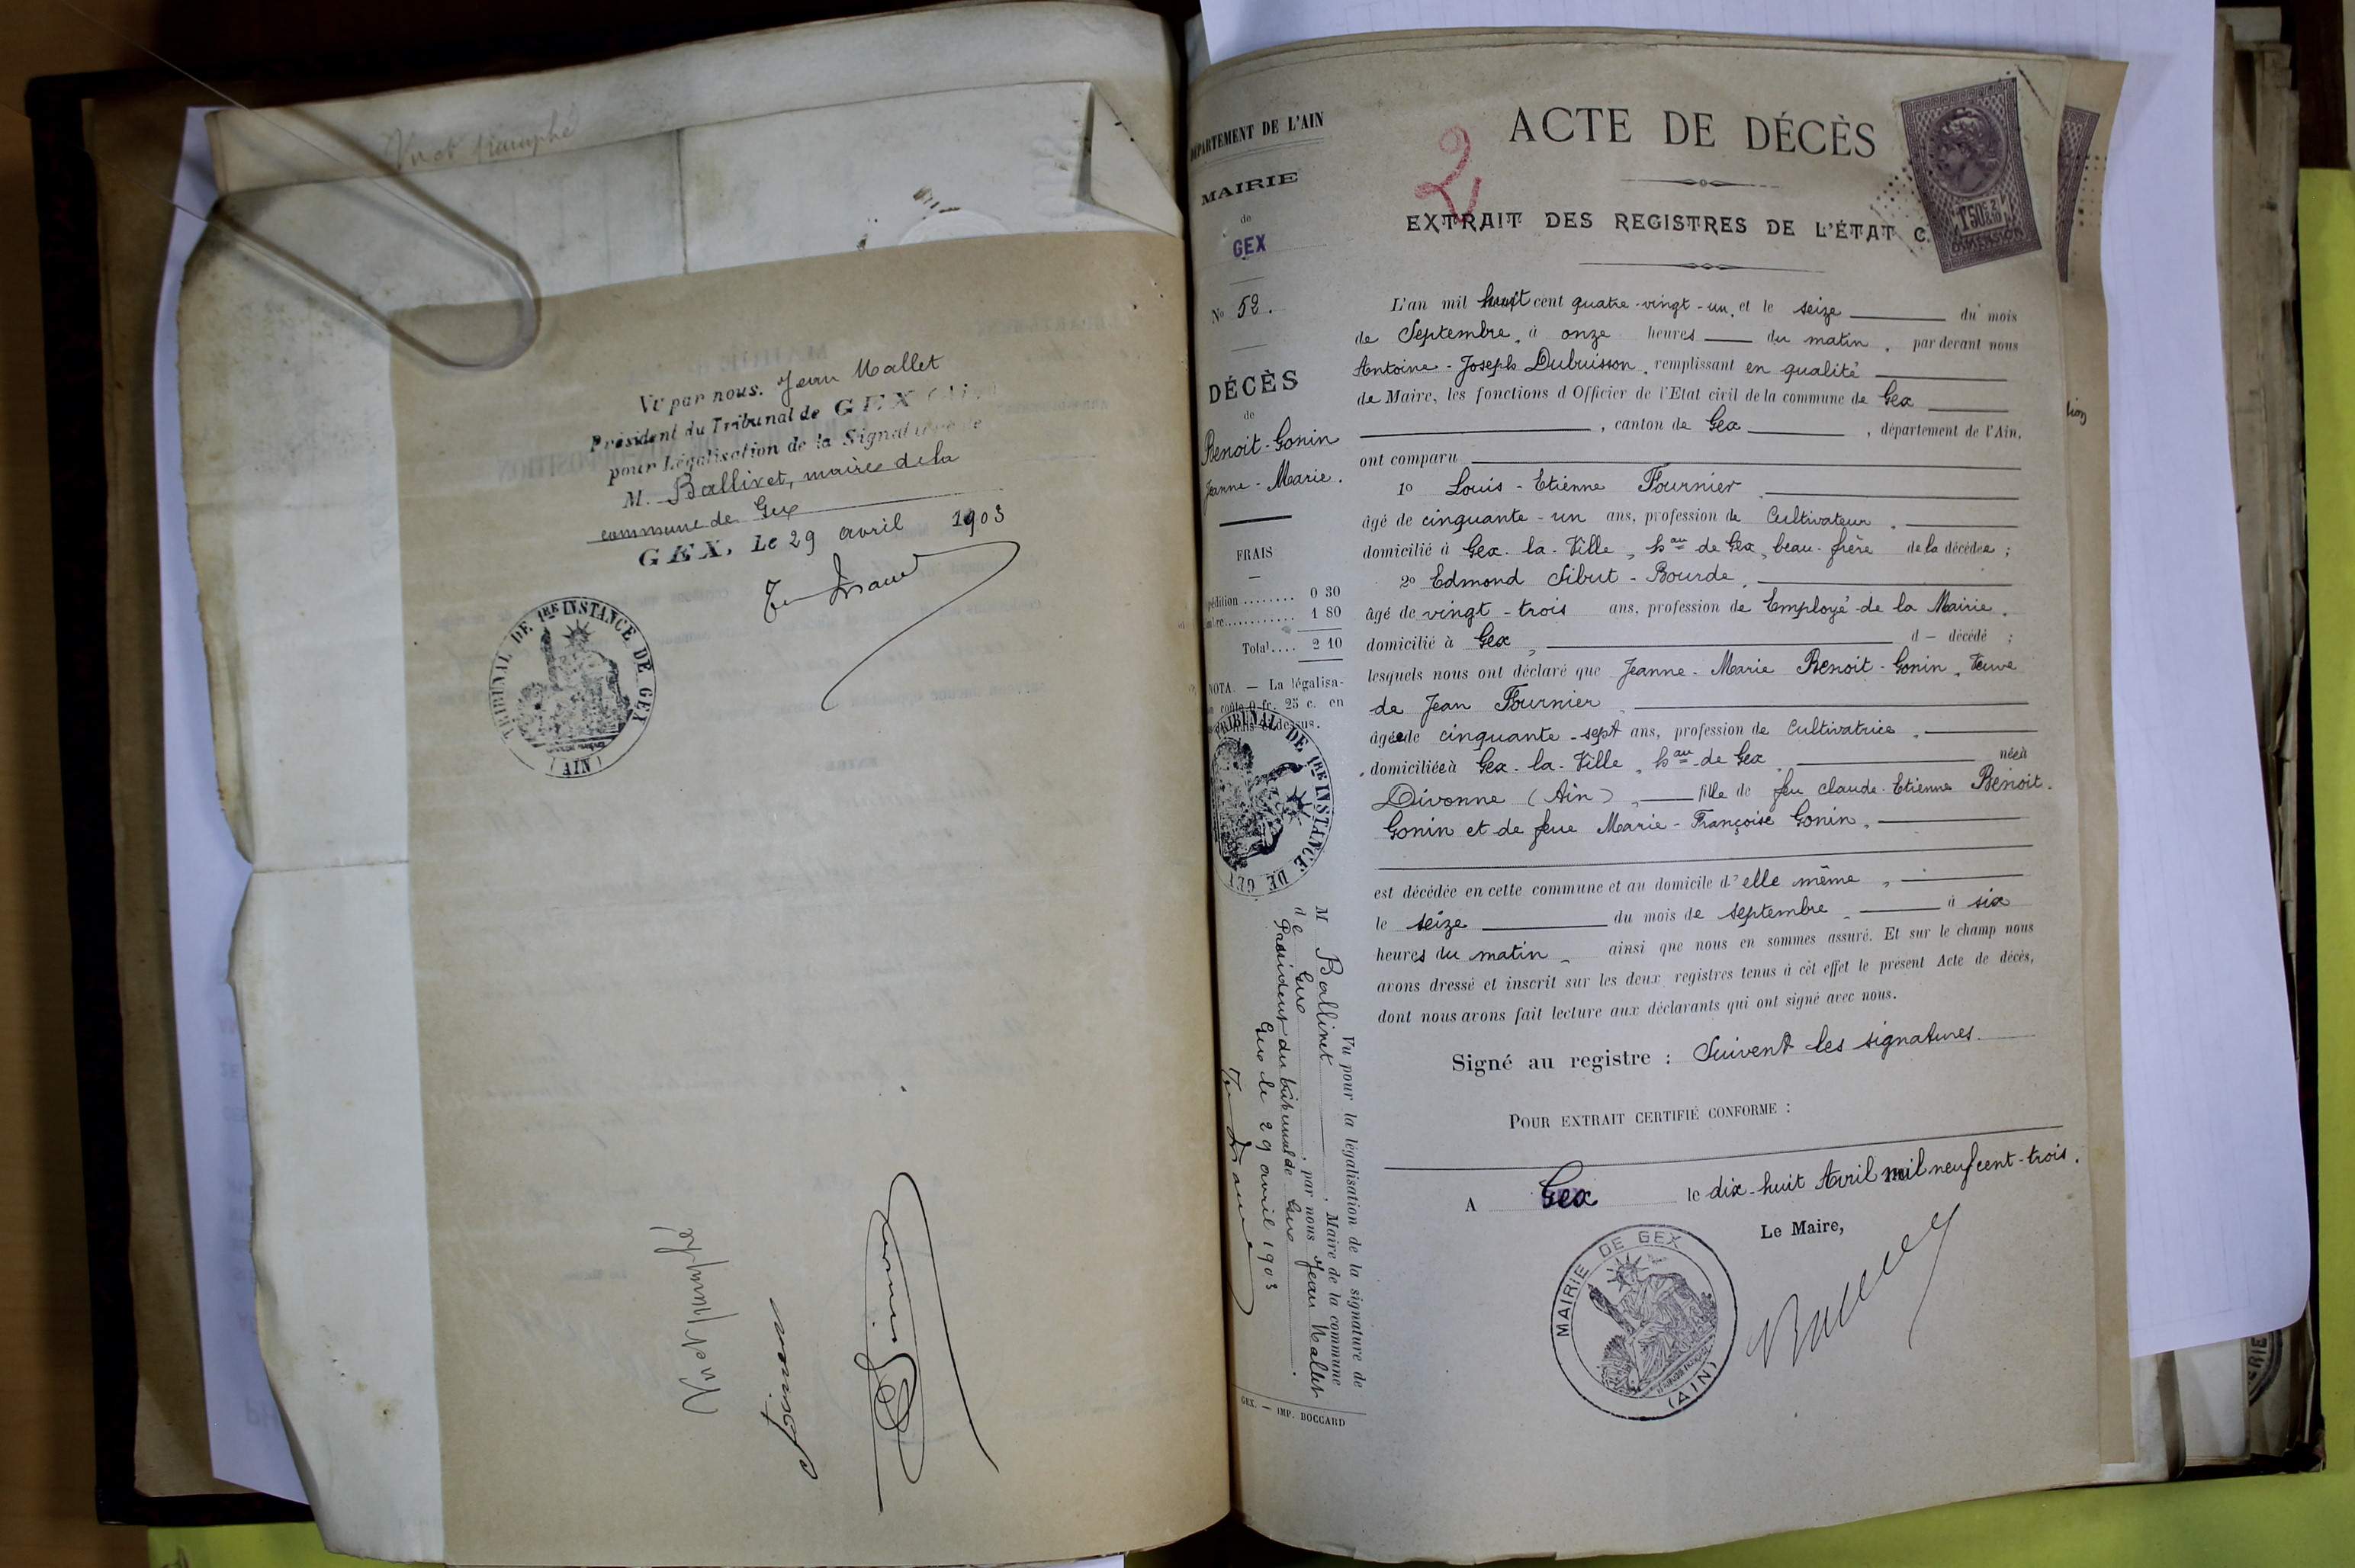 Vu et paraphé
Vu par nous. Jean Mallet
Président du Tribunal de GEX (Ain)
pour Légalisation de la Signature de
M. Ballivet, maire de la
commune de Gex
GEX, Le 29 avril 1903
TRIBUNAL DE 1RE INSTANCE DE GEX
(AIN)
Vu et paraphé
DÉPARTEMENT DE L'AIN
MAIRIE
de
GEX
No 52.
DÉCÈS
de
Benoit-Gonin
Jeanne-Marie.
FRAIS
pédition ........ 0 30
mbre............ 1 80
Total.... 2 10
NOTA. — La légalisa-
n coûte 0 fr. 25 c. en
ci-dessus.
TRIBUNAL DE 1RE INSTANCE DE GEX
Vu pour la légalisation de la signature de
M Ballivet, Maire de la commune
de Gex, par nous Jean Mallet
Président du tribunal de Gex
Gex le 29 avril 1903
GEX. — IMP. BOCCARD
2
ACTE DE DÉCÈS
EXTRAIT DES REGISTRES DE L'ÉTAT C.
1F50C 2/10
DIMENSION
L'an mil huit cent quatre-vingt-un, et le seize du mois
de Septembre, à onze heures du matin, par devant nous
Antoine-Joseph Dubuisson, remplissant en qualité
de Maire, les fonctions d'Officier de l'Etat civil de la commune de Gex
, canton de Gex , département de l'Ain,
ont comparu
1o Louis-Etienne Fournier
âgé de cinquante-un ans, profession de Cultivateur,
domicilié à Gex-la-Ville, hau de Gex, beau-frère de la décédée ;
2o Edmond Sibut-Bourde,
âgé de vingt-trois ans, profession de Employé de la Mairie,
domicilié à Gex, d — décédé ;
lesquels nous ont déclaré que Jeanne-Marie Benoit-Gonin, Veuve
de Jean Fournier
âgée de cinquante-sept ans, profession de Cultivatrice,
domiciliée à Gex-la-Ville, hau de Gex, née à
Divonne (Ain), fille de feu Claude-Etienne Benoit-
Gonin et de feue Marie-Françoise Gonin,
est décédée en cette commune et au domicile d'elle même,
le seize du mois de septembre, à six
heures du matin, ainsi que nous en sommes assuré. Et sur le champ nous
avons dressé et inscrit sur les deux registres tenus à cet effet le présent Acte de décès,
dont nous avons fait lecture aux déclarants qui ont signé avec nous.
Signé au registre : Suivent les signatures.
POUR EXTRAIT CERTIFIÉ CONFORME :
A Gex le dix-huit Avril mil neuf cent-trois.
Le Maire,
MAIRIE DE GEX
(AIN)